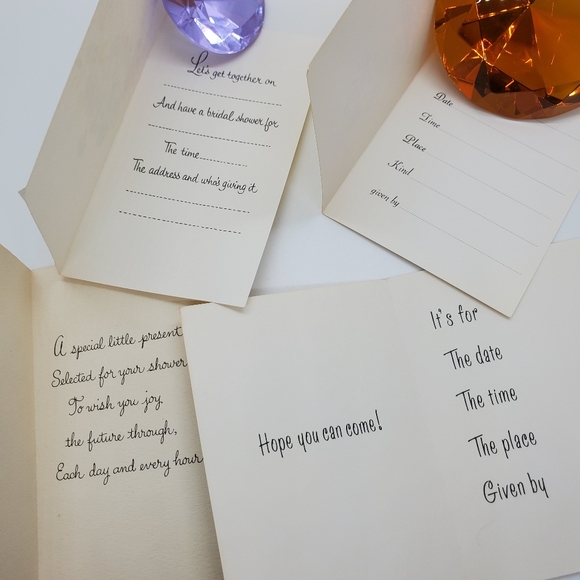 Let's get together on
And have a bridal shower for
The time
The address and who's giving it
Date
Time
Place
Kind
given by
A special little present
Selected for your shower
To wish you joy
the future through,
Each day and every hour
Hope you can come!
It's for
The date
The time
The place
Given by